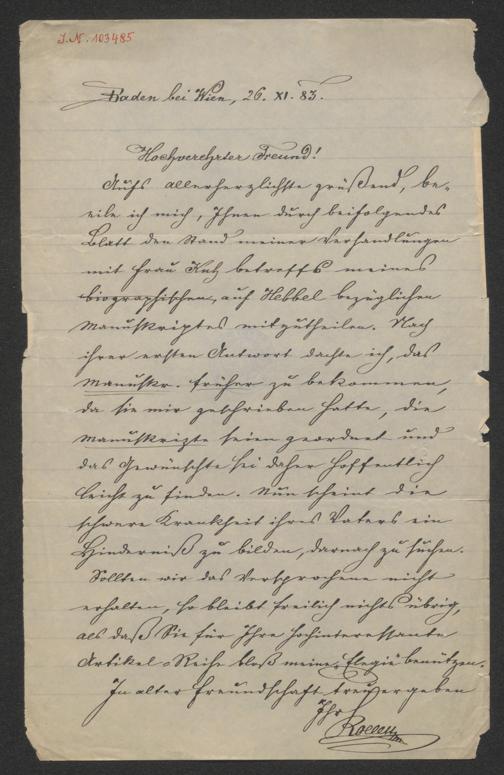 J.N. 103485
Baden bei Wien, 26. XI. 83.
Hochverehrter Freund!
Aufs allerherzlichste grüßend, be-
eile ich mich, Ihnen durch beifolgendes
Blatt den Stand meiner Verhandlungen
mit Frau Kuh betreffs meines
biographischen, auf Hebbel bezüglichen
Manuskriptes mitzutheilen. Nach
ihrer ersten Antwort dachte ich, das
Manuskr. früher zu bekommen,
da sie mir geschrieben hatte, die
Manuskripte seien geordnet und
das Gewünschte sei daher hoffentlich
leicht zu finden. Nun scheint die
schwere Krankheit ihres Vaters ein
Hinderniß zu bilden, darnach zu suchen.
Sollten wir das Versprochene nicht
erhalten, so bleibt freilich nichts übrig,
als daß Sie für Ihre hochinteressante
Artikel-Reihe bloß meine „Elegie" benützen.
In alter Freundschaft treuergeben
Ihr
Rollett